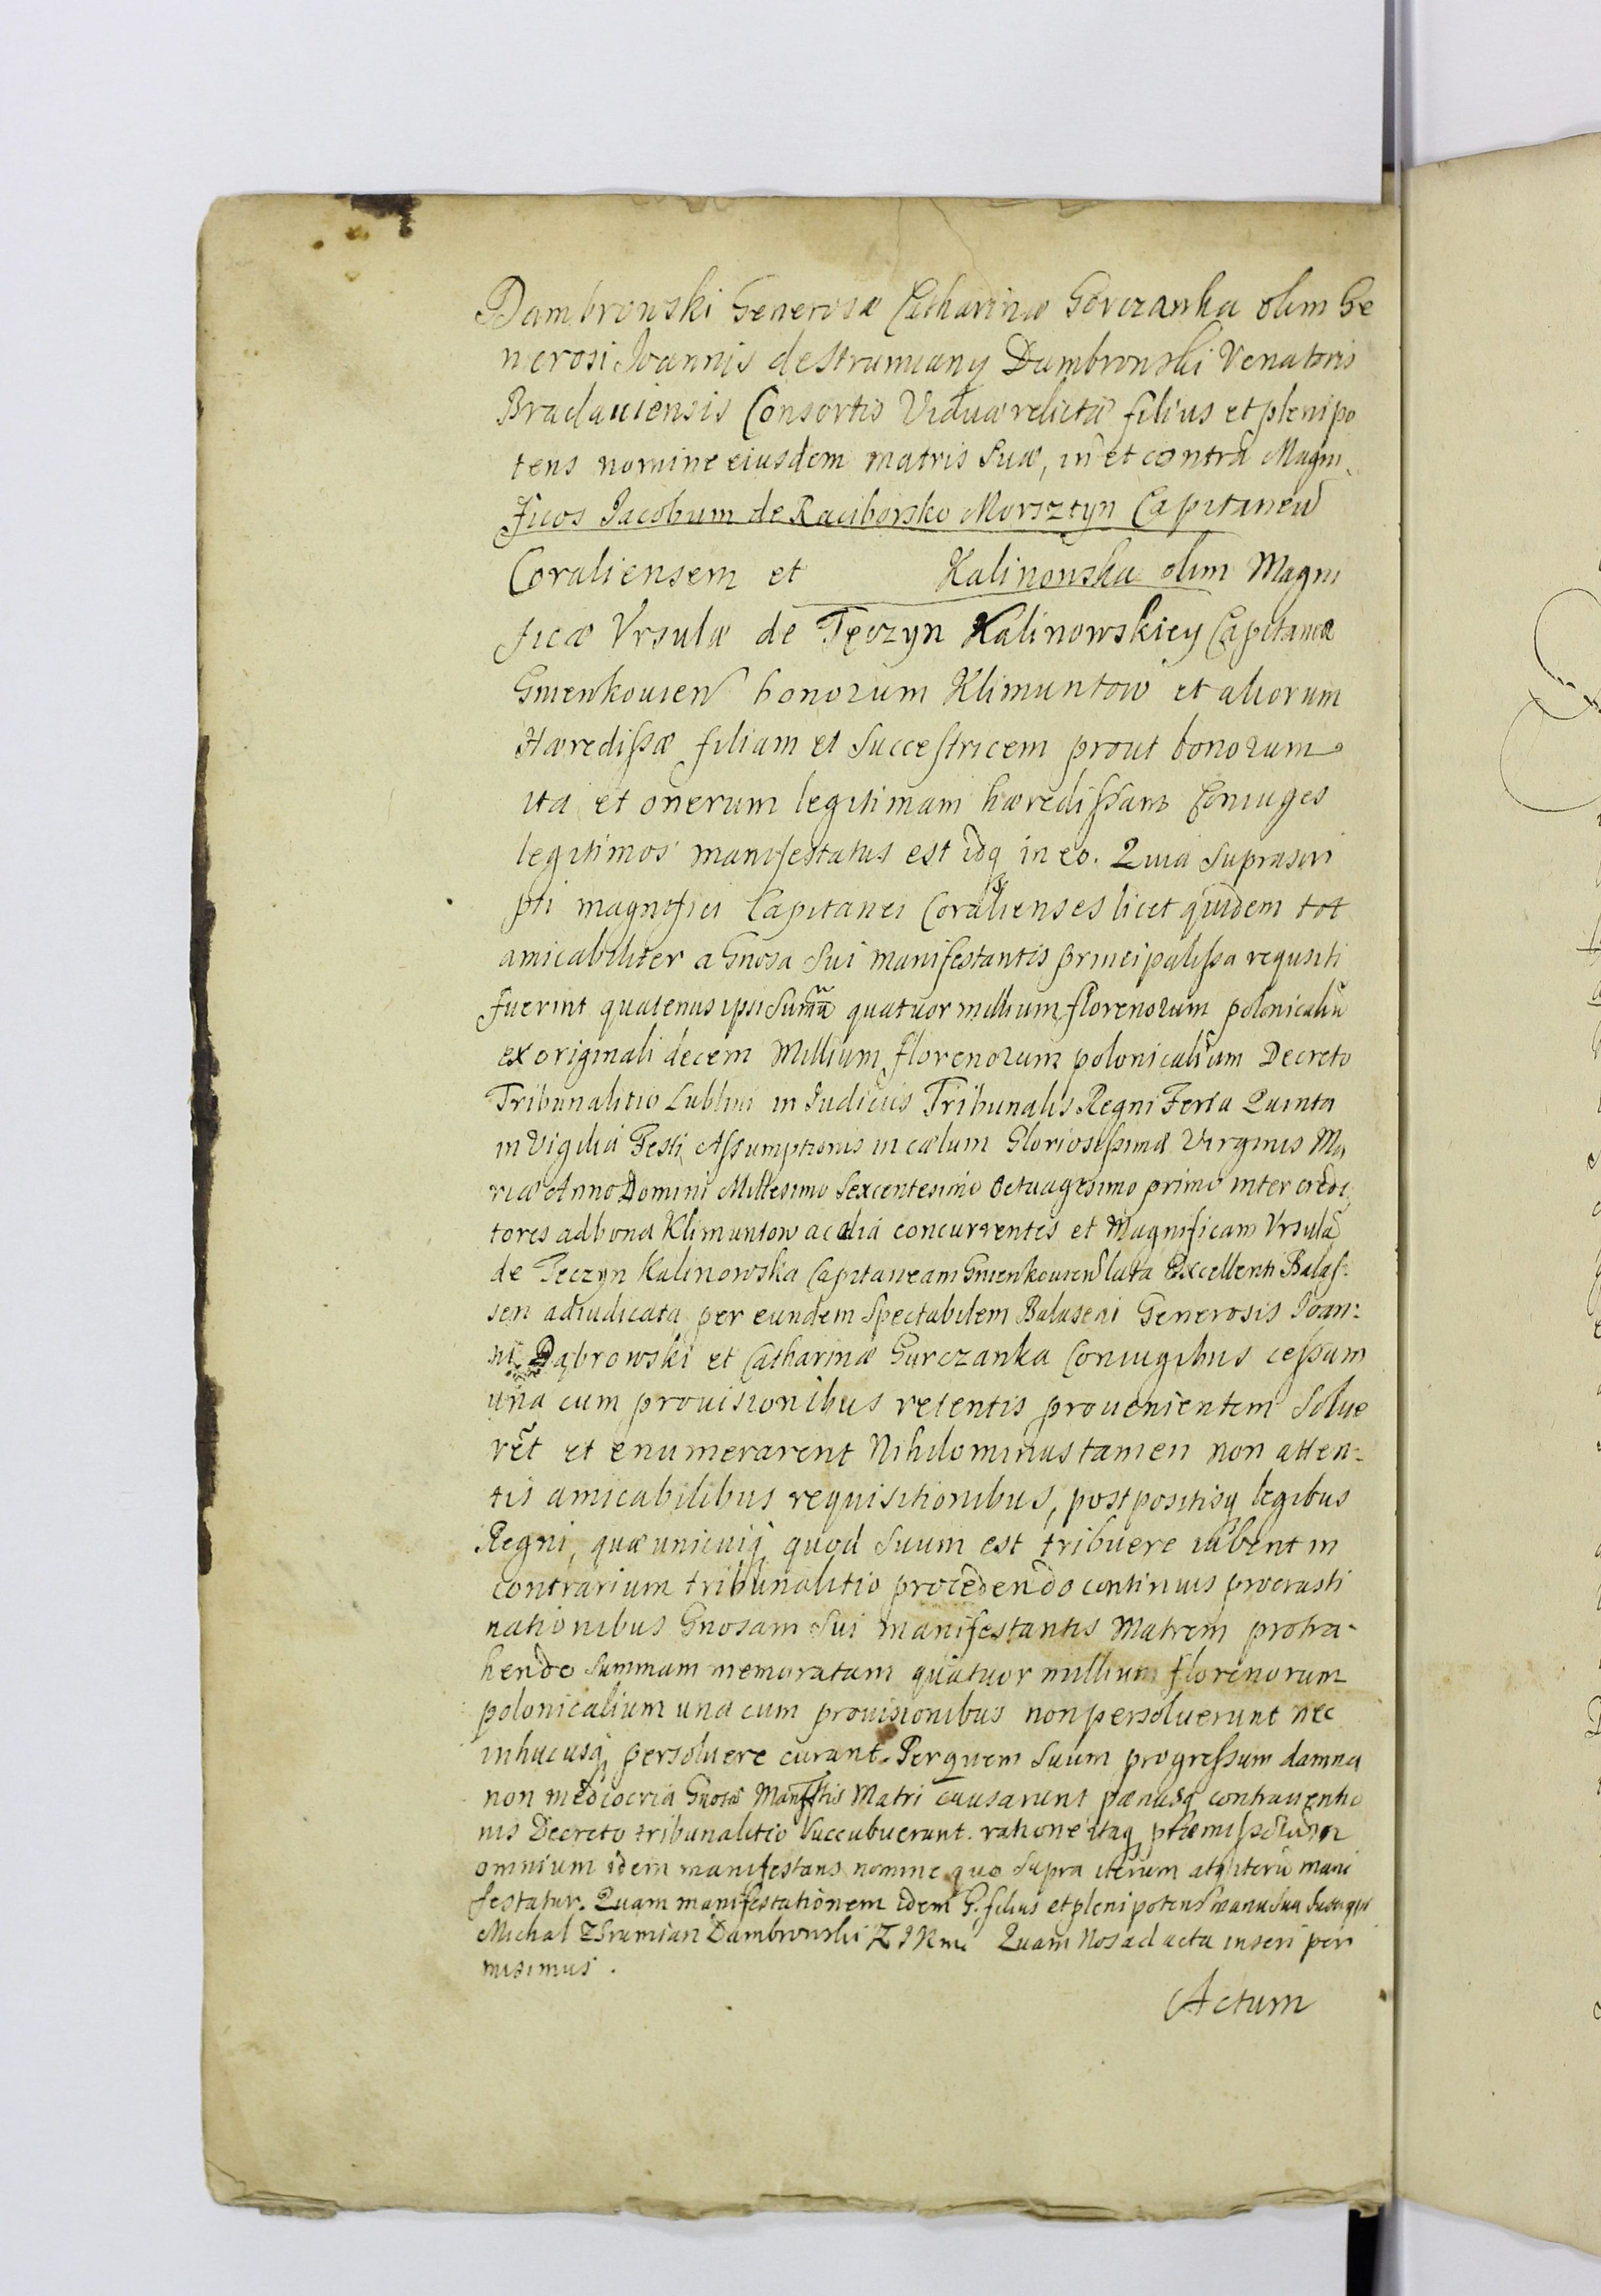 Dambrowski Generosæ Catharinæ Gorczanka olim Ge
nerosi Joannis de Strumiany Dambrowski Venatoris
Braclauiensis Consortis Viduæ relictæ filius et plenipo
tens nomine eiusdem matris suæ, in et contra Magni
ficos Jacobum de Raciborsko Morsztyn Capitaneũ
Coraliensem et Kalinowska olim Magni
ficæ Vrsulæ de Tęczyn Kalinowskiey Capitaneæ
Gnienkouien bonorum Klimuntow et aliorum
Hæredissæ filiam et Succestricem prout bonorum
ita et onerum legitimam hæredissam Coniuges
legitimos manifestatus est idq in eo. Quia suprascri
pti magnifici Capitanei Coralienses licet quidem tot
amicabiliter a Gnosa sui manifestantis principalissa requsiti
fuerint quatenus ipsi sum̃ã quatuor millium florenorum polonicaliũ
ex originali decem Millium florenorum polonicalium Decreto
Tribunalitio Lublini in Judicijs Tribunalis Regni Feria Quinta
in Vigilia Festi Assumptionis in cælum Gloriosissimæ Virginis Ma
riæ Anno Domini Millesimo Sexcentesimo Octuagesimo primo inter credi
tores ad bona Klimuntow ac alia concurrentes et Magnificam Vrsulã
de Teczyn Kalinowska Capitaneam Gnienkouien lata Excellenti Balas:
seri adiudicata per eundem Spectabilem Balaseri Generosis Joan:
ni Dąbrowski et Catharinæ Gurczanka Coniugibus cessam
una cum prouisionibus retentis prouenientem solue
rẽt et enumerarent Nihilominus tamen non atten:
tis amicabilibus requisitionibus, postpositisq legibus
Regni, quæ unicuiq quod suum est tribuere iubent in
contrarium tribunalitio procedendo continuis procrasti
nationibus Gnosam sui manifestantis Matrem protra-
hendo summam memoratam quatuor millium florenorum
polonicalium una cum prouisionibus non persoluerunt nec
inhucusq persoluere curant. Per quem suum progressum damna
non mediocria Gnosæ Manftis Matri causarunt pænasq contrauentio
nis Decreto tribunalitio succubuerunt. ratione itaq præmissorum
omnium idem manifestans nomine quo supra iterum atq iterũ mani
festatur. Quam manifestationem idem G. filius et plenipotens manu sua
Michal Strumian Dambrowski Quam Nos ad acta inseri per
misimus.
Actum